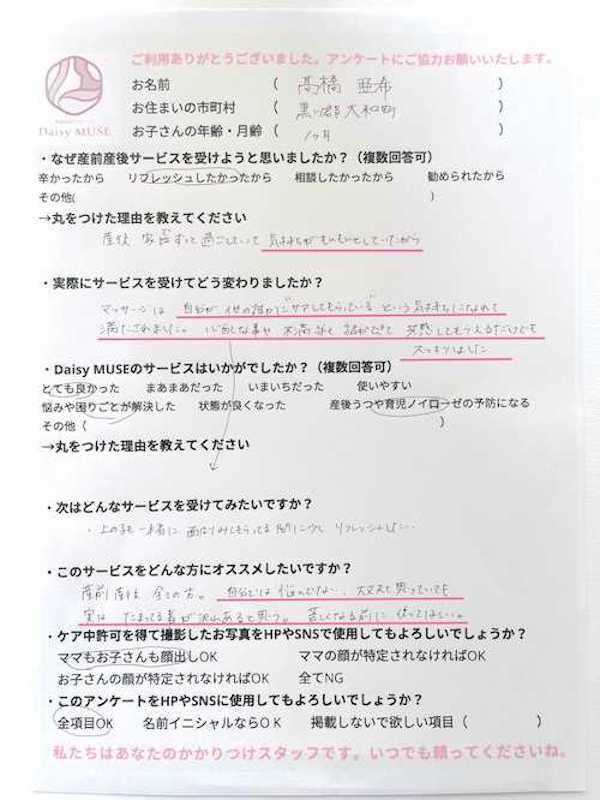 ご利用ありがとうございました。アンケートにご協力お願いいたします。
Daisy MUSE
お名前 ( 高橋 亜希 )
お住まいの市町村 ( 黒川郡大和町 )
お子さんの年齢・月齢 ( 1ヶ月 )
・なぜ産前産後サービスを受けようと思いましたか？（複数回答可）
辛かったから リフレッシュしたかったから 相談したかったから 勧められたから
その他( )
→丸をつけた理由を教えてください
産後 家でずっと過ごしていて 気持ちがもやもやしていたから
・実際にサービスを受けてどう変わりましたか？
マッサージは 自分が 他の誰かにケアしてもらっている という気持ちになれて
満たされました。心配な事や 不満等も 話ができて 共感してもらえるだけでも
スッキリしました
・Daisy MUSEのサービスはいかがでしたか？（複数回答可）
とても良かった まあまあだった いまいちだった 使いやすい
悩みや困りごとが解決した 状態が良くなった 産後うつや育児ノイローゼの予防になる
その他（ ）
→丸をつけた理由を教えてください
・次はどんなサービスを受けてみたいですか？
・上の子も一緒に 面倒みてもらってる間に リフレッシュしたい
・このサービスをどんな方にオススメしたいですか？
産前産後 全ての方。自分では 悩んでない、大丈夫と思っていても
実は たまってる事が沢山あると思う。苦しくなる前に 使ってほしい。
・ケア中許可を得て撮影したお写真をHPやSNSで使用してもよろしいでしょうか？
ママもお子さんも顔出しOK ママの顔が特定されなければOK
お子さんの顔が特定されなければOK 全てNG
・このアンケートをHPやSNSに使用してもよろしいでしょうか？
全項目OK 名前イニシャルならOK 掲載しないで欲しい項目（ ）
私たちはあなたのかかりつけスタッフです。いつでも頼ってくださいね。